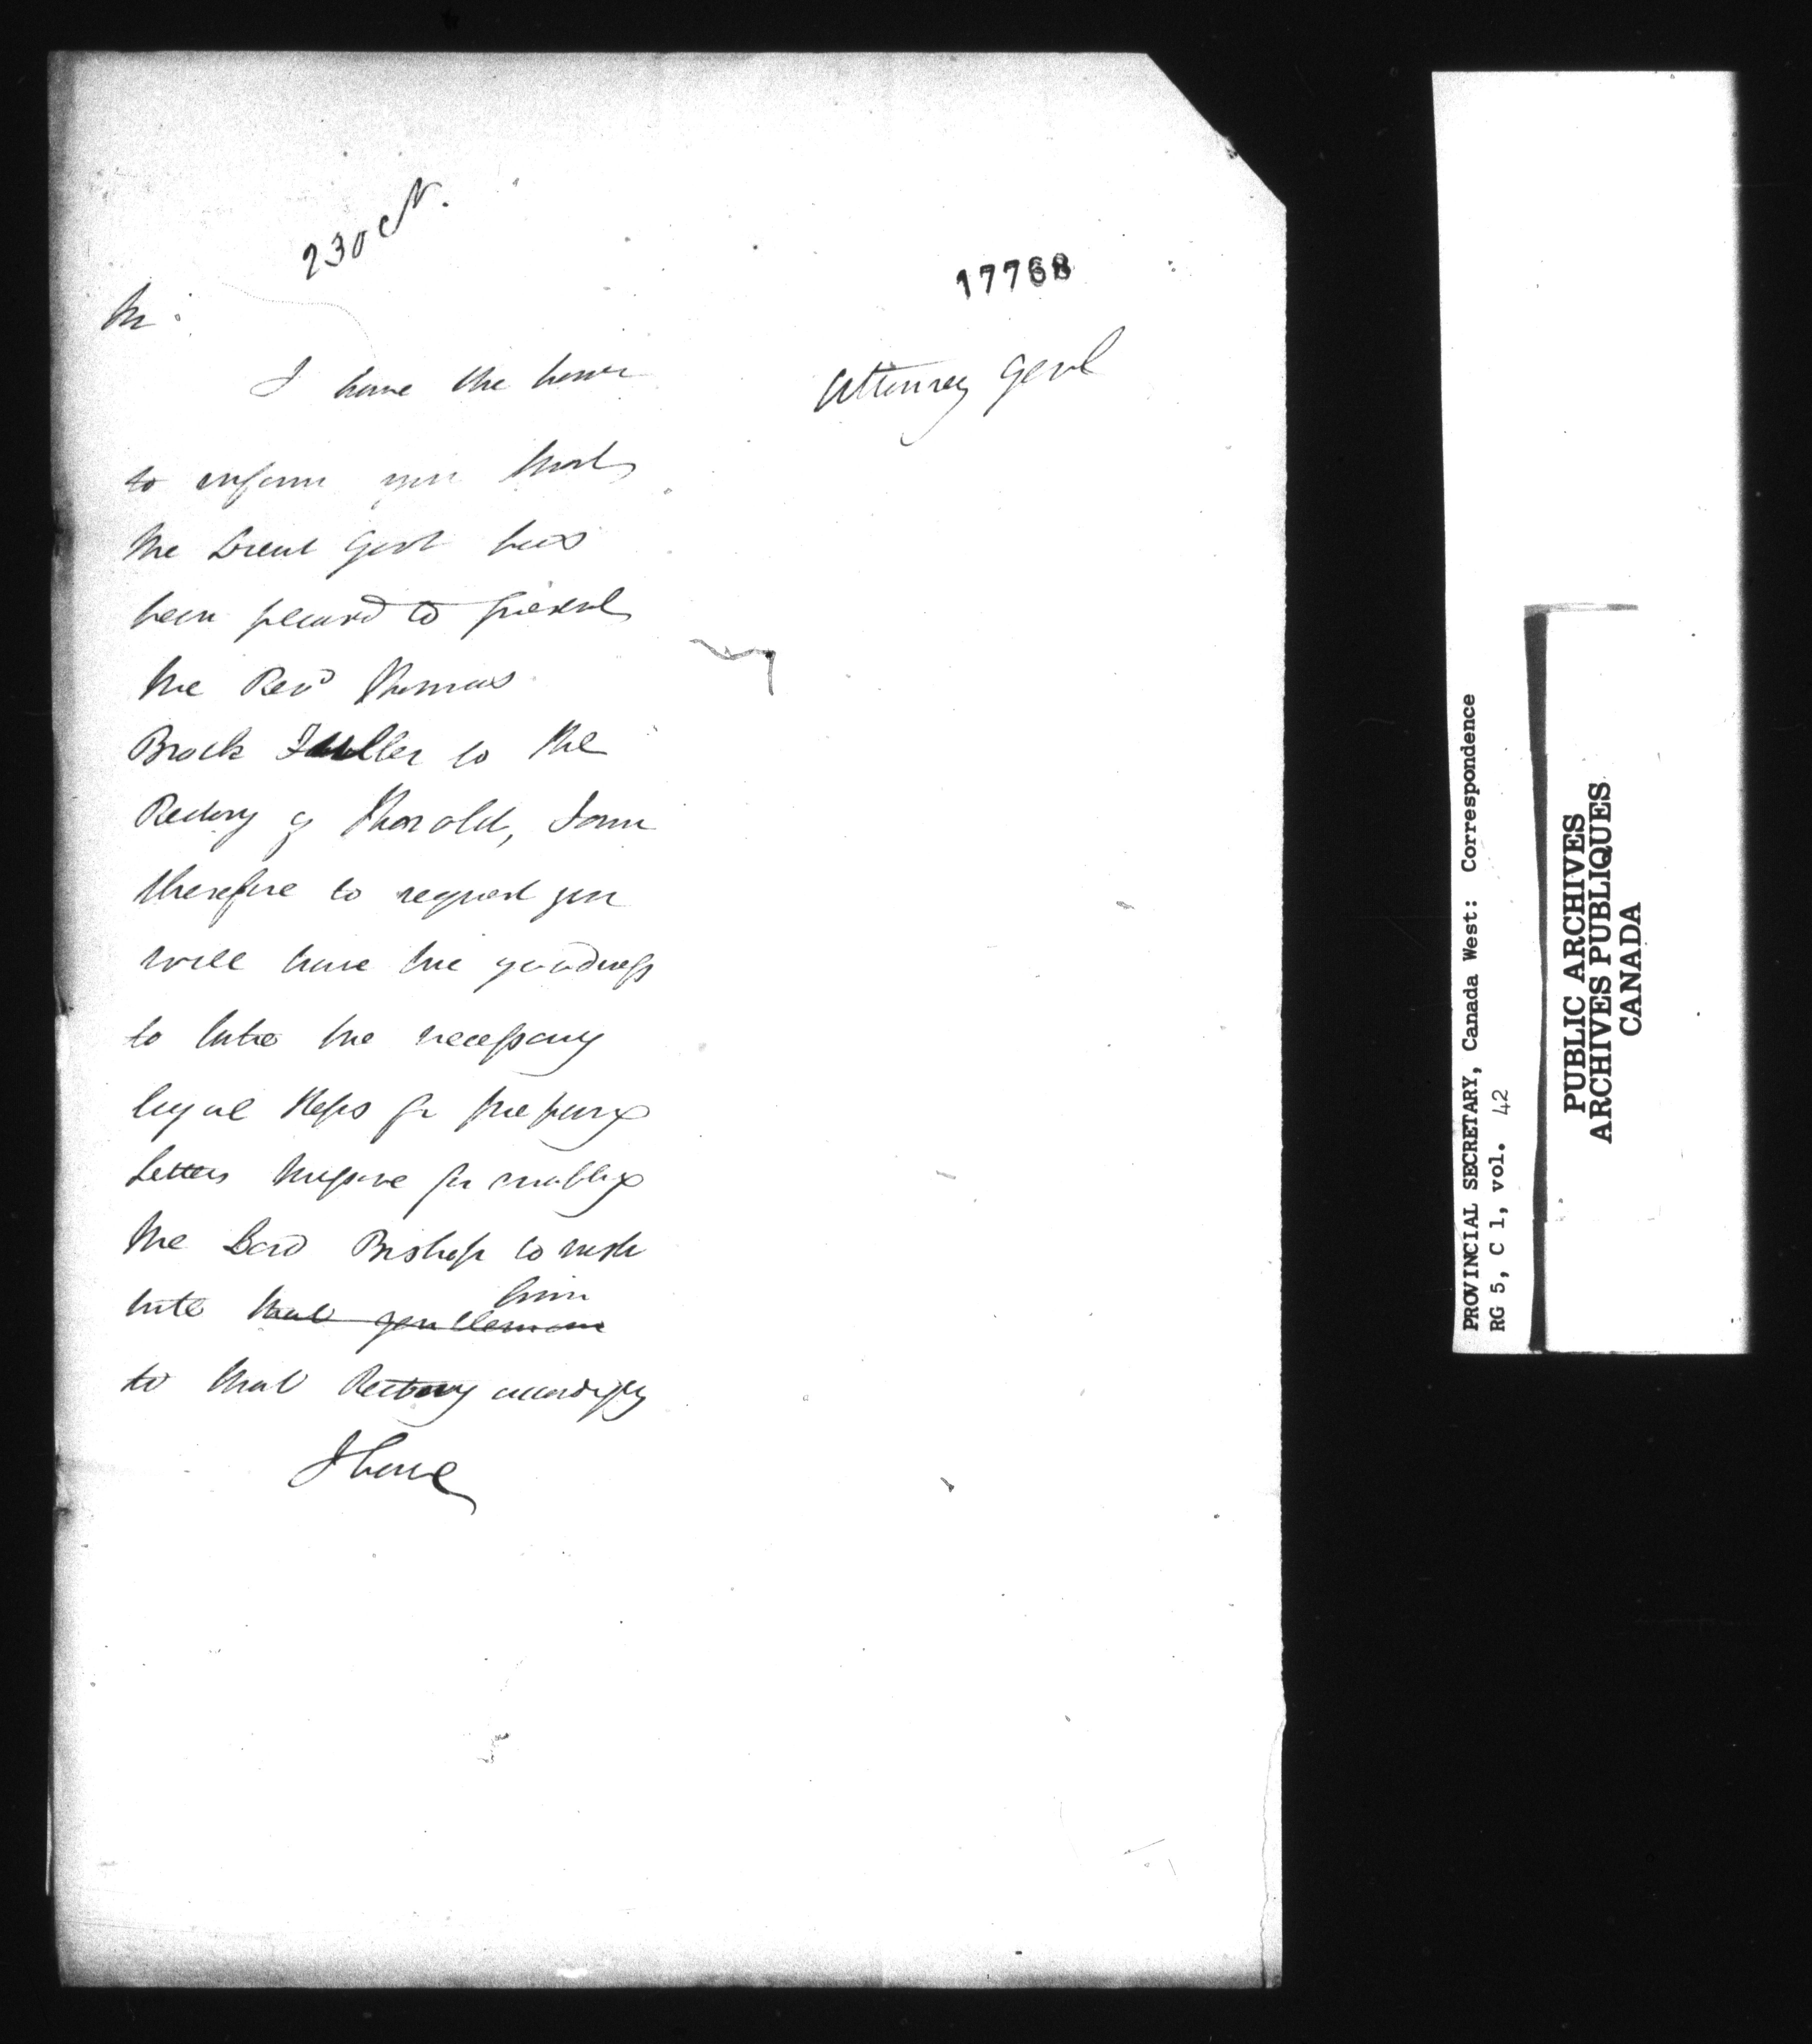 230 N.
17768
Attorney Genl
Sir
I have the honor
to inform you that
the Govt has
been pleased to present
the Revd Thomas
Brock Fuller to the
Rectory of Thorold, I am
therefore to request you
will have the goodness
to take the necessary
legal steps for preparg
Letters Missive for enablig
the Lord Bishop to insti
tute that gentleman him
to that Rectory accordigly
I have
PROVINCIAL SECRETARY, Canada West: Correspondence
RG 5, C 1, vol. 42
PUBLIC ARCHIVES
ARCHIVES PUBLIQUES
CANADA